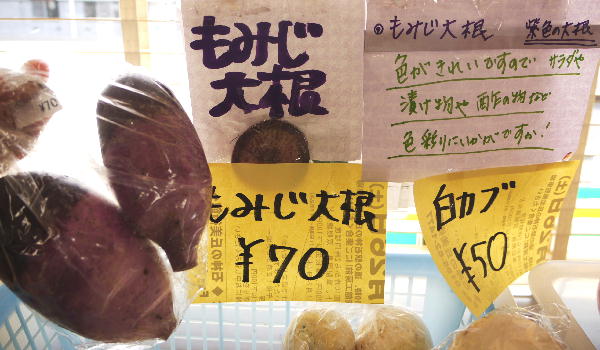 もみじ
大根
◎もみじ大根 紫色の大根
色がきれいですので サラダや
漬け物や 酢の物など
色彩りにいかがですか!
もみじ大根
¥70
白カブ
¥50
¥70